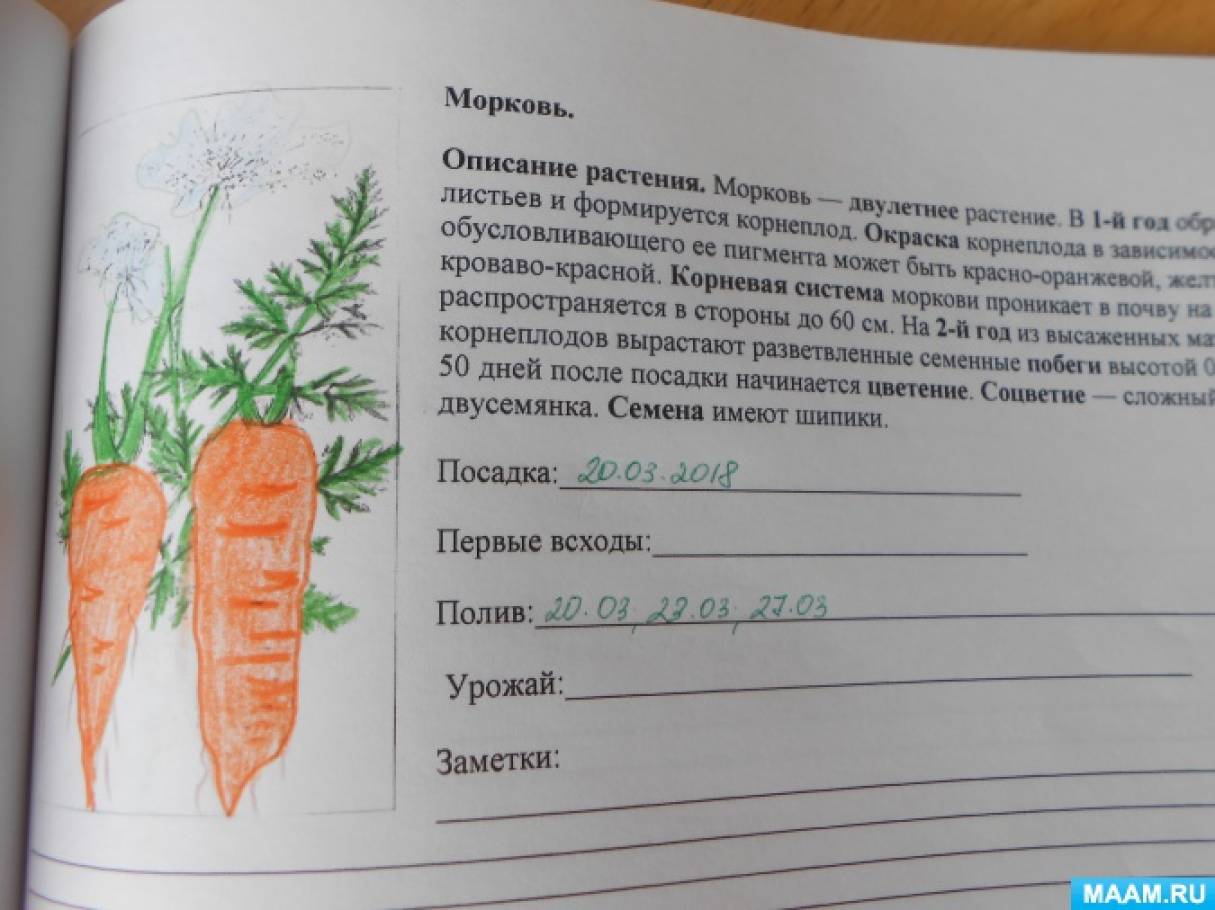 Морковь.
Описание растения. Морковь — двулетнее растение. В 1-й год
листьев и формируется корнеплод. Окраска корнеплода в
обусловливающего ее пигмента может быть красно-оранжевой,
кроваво-красной. Корневая система моркови проникает в почву на
распространяется в стороны до 60 см. На 2-й год из высаженных
корнеплодов вырастают разветвленные семенные побеги высотой
50 дней после посадки начинается цветение. Соцветие — сложный
двусемянка. Семена имеют шипики.
Посадка: 20.03.2018
Первые всходы:
Полив: 20.03, 23.03, 27.03
Урожай:
Заметки:
MAAM.RU